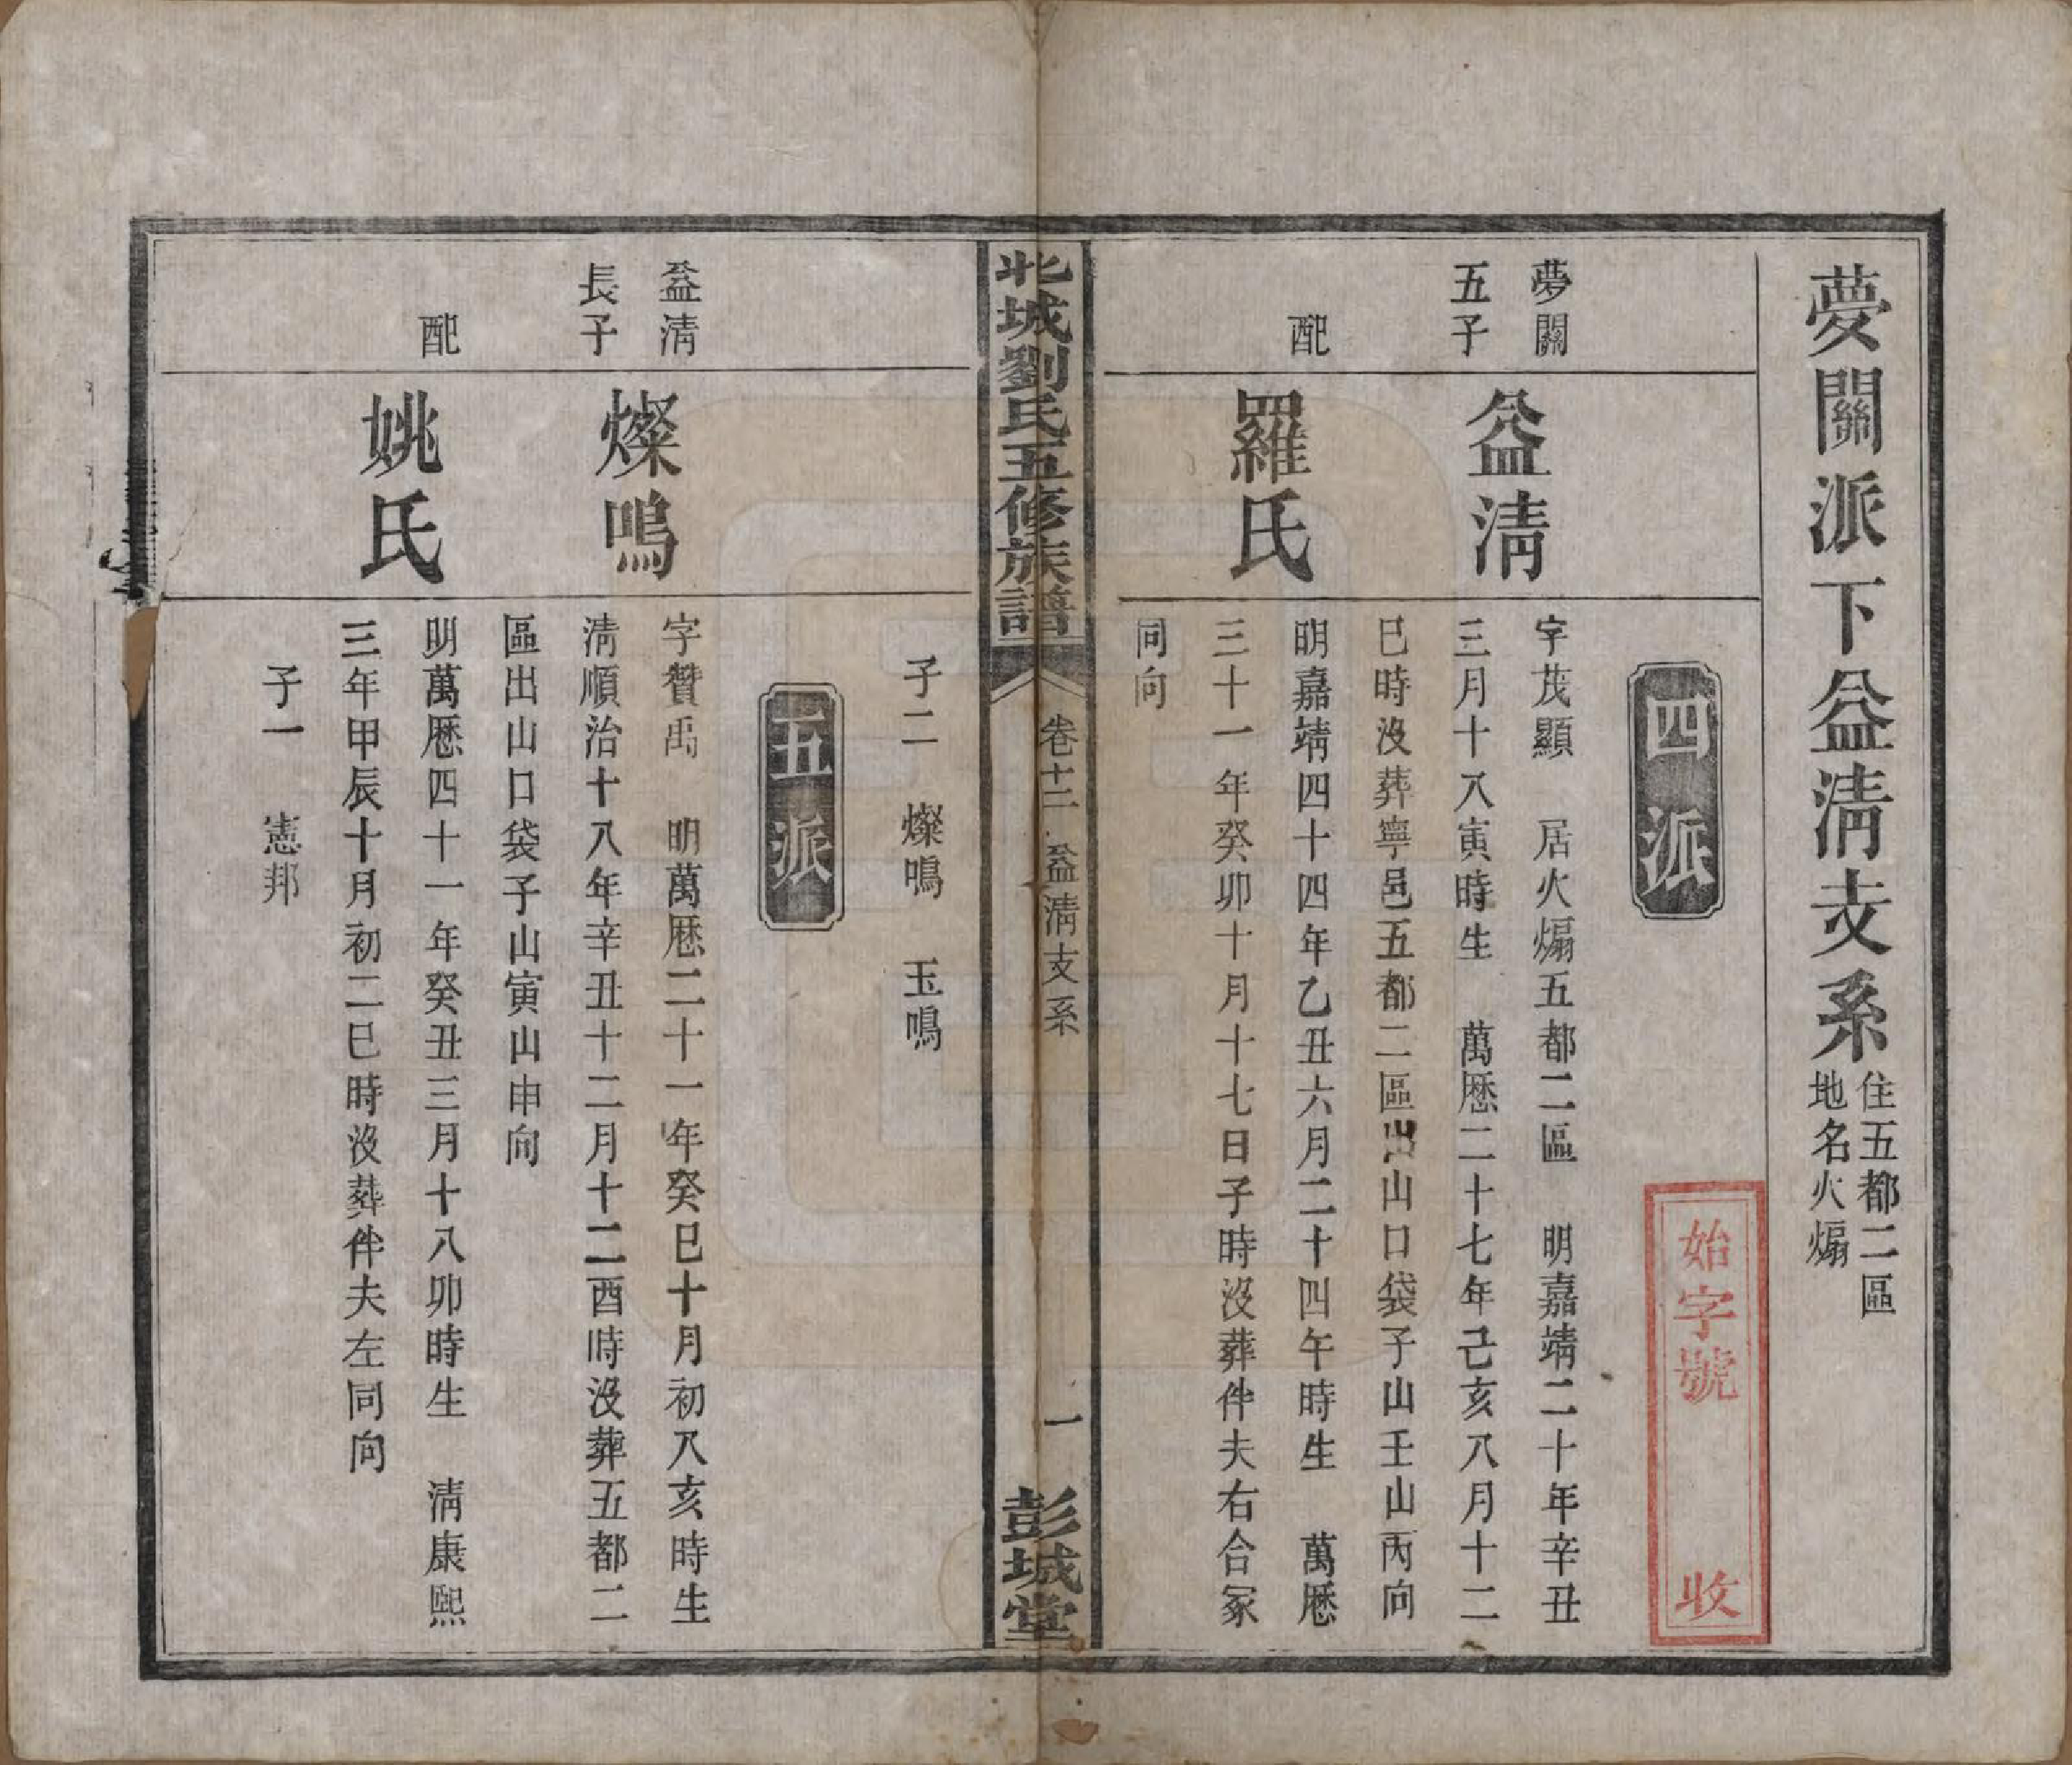 夢關派下益淸支系
住五都二區
地名火煽
四派
始字號 收
夢關
五子
益淸
字茂顯 居火煽五都二區 明嘉靖二十年辛丑
三月十八寅時生 萬厯二十七年己亥八月十二
巳時沒葬寧邑五都二區出山口袋子山壬山丙向
配
羅氏
明嘉靖四十四年乙丑六月二十四午時生 萬厯
三十一年癸卯十月十七日子時沒葬伴夫右合冢
同向
北城劉氏五修族譜
卷十二 益淸支系
一
彭城堂
子二 燦鳴 玉鳴
五派
益淸
長子
燦鳴
字贊禹 明萬厯二十一年癸巳十月初八亥時生
淸順治十八年辛丑十二月十二酉時沒葬五都二
區出山口袋子山寅山申向
配
姚氏
明萬厯四十一年癸丑三月十八卯時生 淸康熙
三年甲辰十月初二巳時沒葬伴夫左同向
子一 憲邦